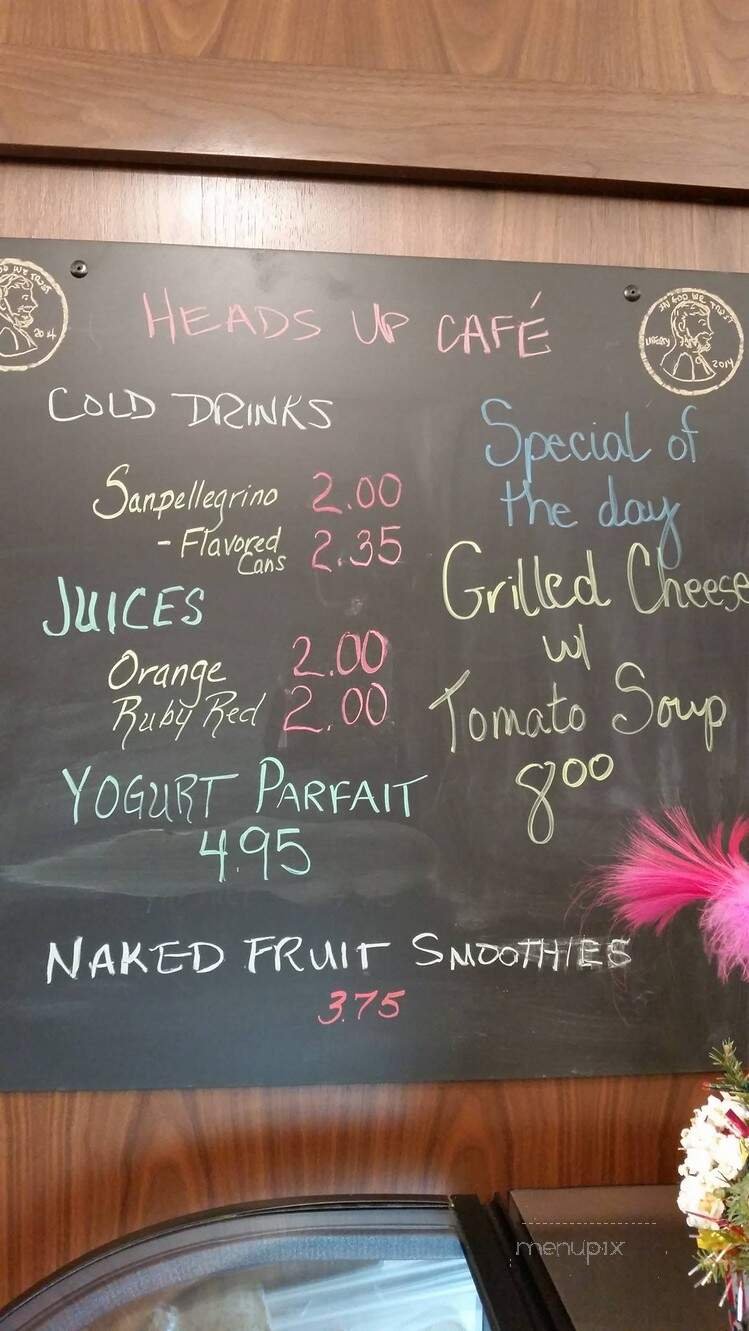 HEADS UP CAFÉ
IN GOD WE TRUST
LIBERTY
2014
WE TRUST
2014
COLD DRINKS
Sanpellegrino 2.00
- Flavored Cans 2.35
JUICES
Orange 2.00
Ruby Red 2.00
YOGURT PARFAIT
4.95
Special of
the day
Grilled Cheese
w/
Tomato Soup
8.00
NAKED FRUIT SMOOTHIES
3.75
menupix